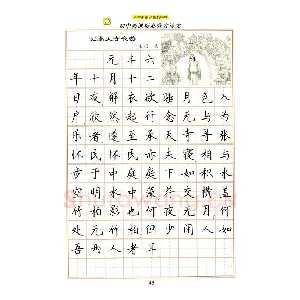 记承天寺夜游
元丰六
年十月十二
日夜解衣欲睡月色入
户欣然起行念无与
乐者遂至承天寺寻张
怀民怀民亦未寝相与
步于中庭庭下如积水
空明水中藻荇交横盖
竹柏影也何夜无月何
处无竹柏但少闲人如
吾两人者耳